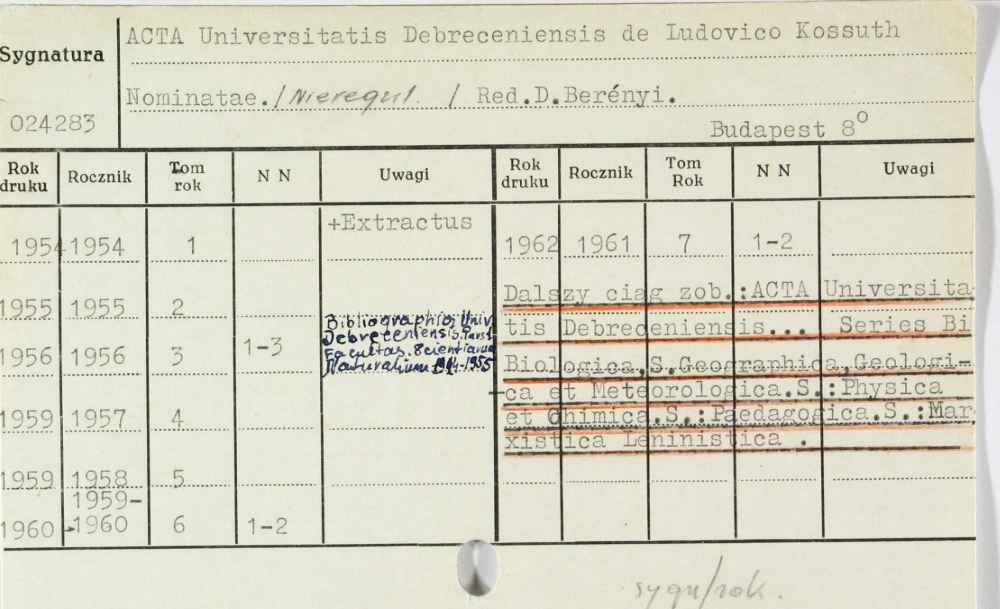 Sygnatura
ACTA Universitatis Debreceniensis de Ludovico Kossuth
Nominatae./Nieregul. / Red.D.Berényi.
024283
Budapest 8°
Rok druku Rocznik Tom rok N N Uwagi Rok druku Rocznik Tom Rok N N Uwagi
+Extractus
1954 1954 1
1962 1961 7 1-2
Dalszy ciąg zob.:ACTA Universita
1955 1955 2
tis Debreceniensis... Series Bi
Bibliographia Univ.
Debreceniensis. Pars 1
Facultas Scientiarum
Naturalium 1914-1955
1956 1956 3 1-3
Biologica,S.Geographica,Geologi-
ca et Meteorologica.S.:Physica
et Chimica.S.:Paedagogica.S.:Mar
xistica Leninistica .
1959 1957 4
1959 1958 5
1959-
1960 -1960 6 1-2
sygn/rok.